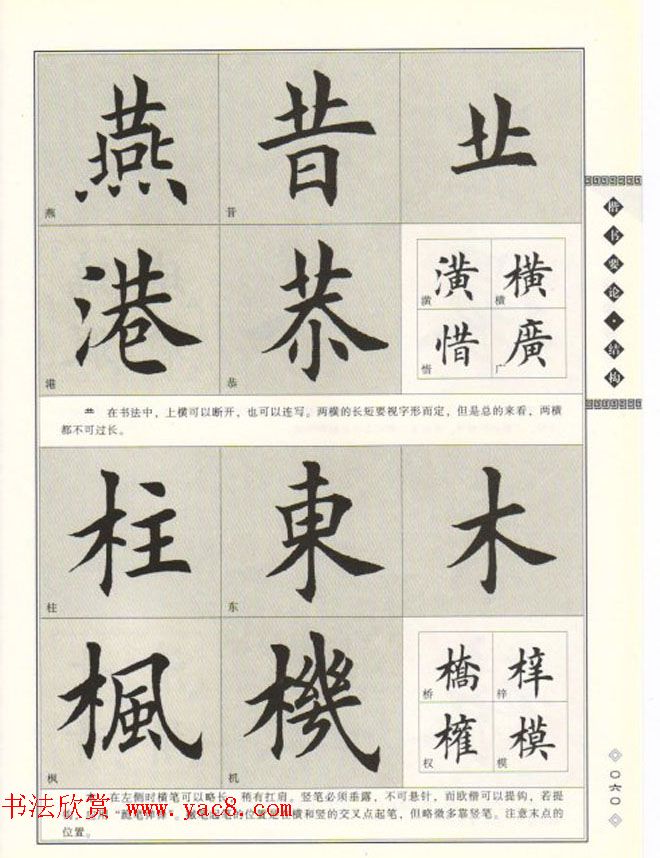 燕
昔
燕
昔
港
恭
潢
横
惜
廣
港
恭
潢
横
惜
广
楷书要论·结构
在书法中，上横可以断开，也可以连写。两横的长短要视字形而定，但是总的来看，两横
都不可过长。
柱
東
木
柱
东
楓
機
橋
梓
權
模
枫
机
桥
梓
权
模
在左侧时横笔可以略长，稍有扛肩。竖笔必须垂露，不可悬针，而欧楷可以提钩，若提
的位置是在横和竖的交叉点起笔，但略微多靠竖笔。注意末点的
位置。
书法欣赏 www.yac8.com
〇六〇